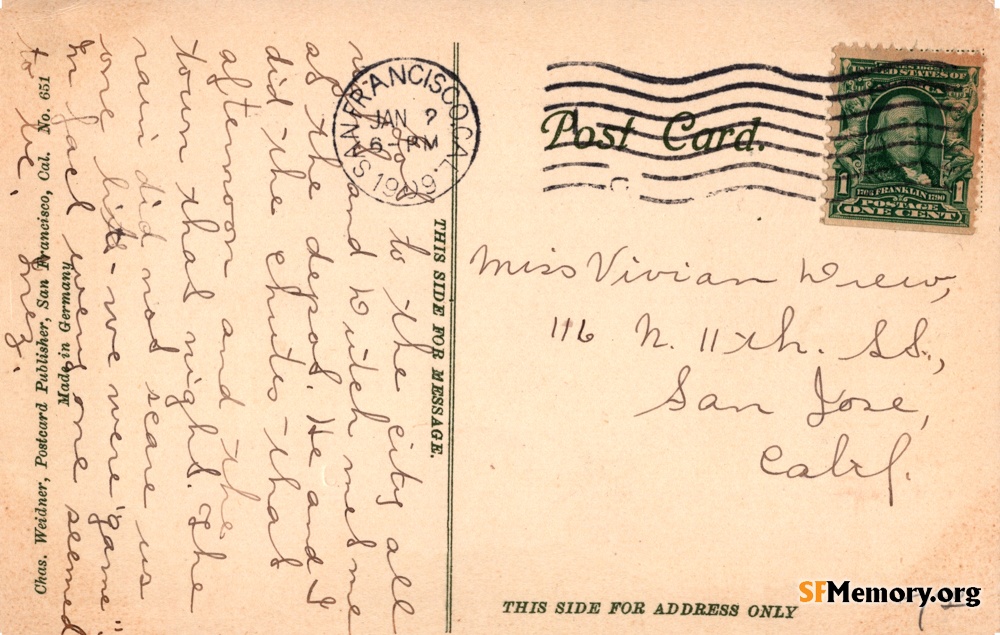 THIS SIDE FOR MESSAGE.
to the city all
and Dutch met me
at the depot. He and I
did the chutes - that
afternoon and the
town that night. The
rain did not scare us
one bit - we were "game"
In fact every one seemed
to be. Inez.
Chas. Weidner, Postcard Publisher, San Francisco, Cal. No. 651
Made in Germany
SAN FRANCISCO, CAL.
JAN ?
6 - PM
1909
Post Card.
UNITED STATES OF AMERICA
1706 FRANKLIN 1790
1 POSTAGE 1
ONE CENT
Miss Vivian Drew,
116 N. 11th. St.,
San Jose,
Calif.
THIS SIDE FOR ADDRESS ONLY
SFMemory.org